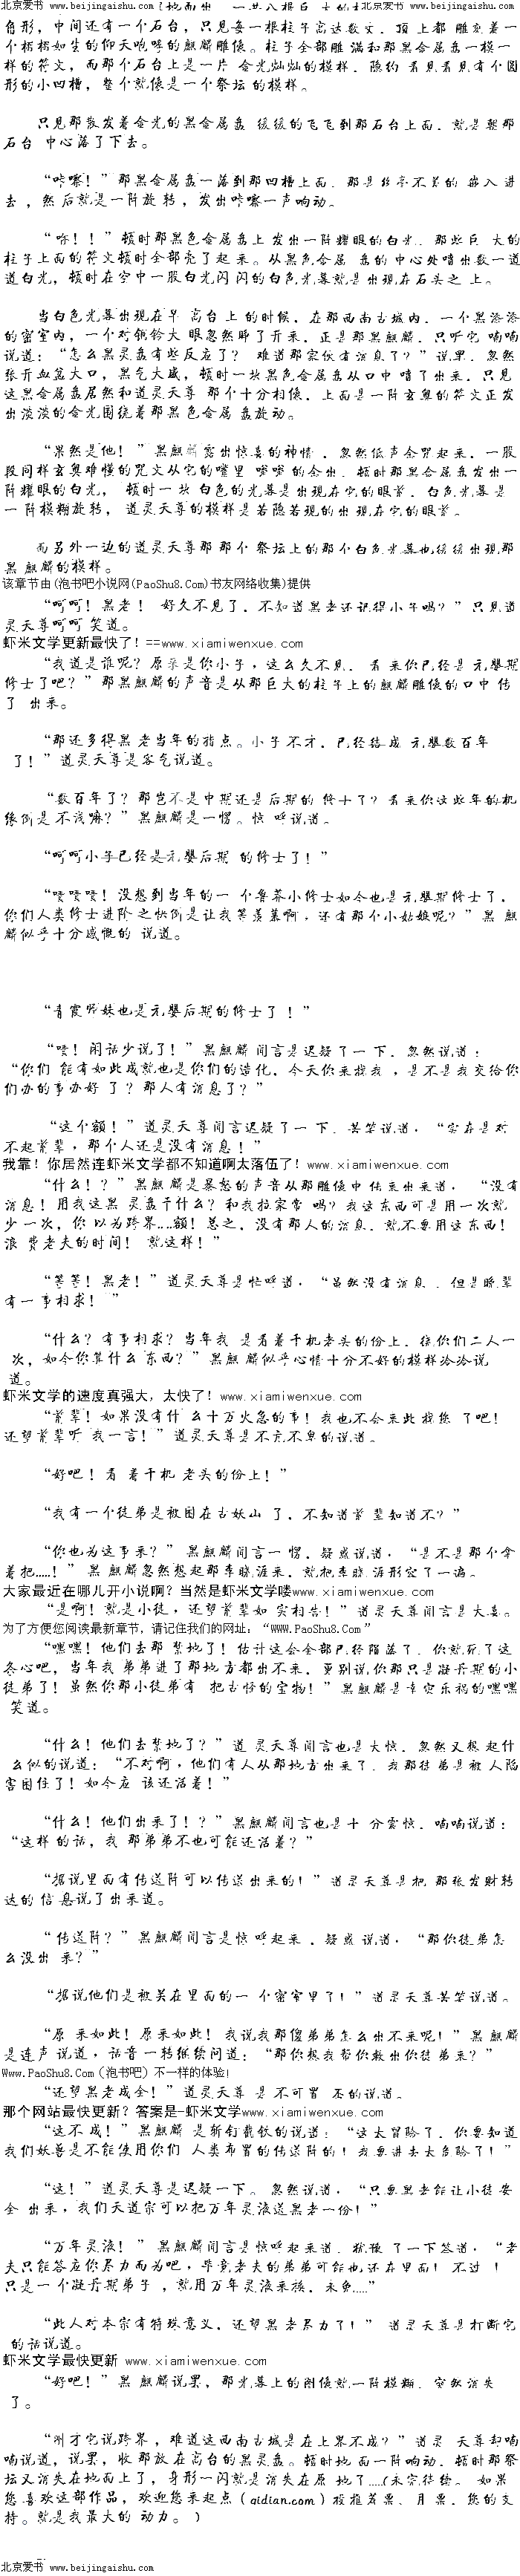 北京爱书 www.beijingaishu.com
北京爱书 www.beijingaishu.com
角形，中间还有一个石台，只见每一根柱子高达数丈，顶上都雕刻着一
个栩栩如生的仰天咆哮的麒麟雕像。柱子全部雕满和那黑金属盘一模一
样的符文，而那个石台上是一片金光灿灿的模样，隐约看见看见有个圆
形的小凹槽，整个就像是一个祭坛的模样。
只见那散发着金光的黑金属盘缓缓的飞飞到那石台上面，就是朝那
石台中心落了下去。
“咔嚓！”那黑金属盘一落到那凹槽上面，那是丝毫不差的嵌入进
去，然后就是一阵旋转，发出咔嚓一声响动。
“哧！！”顿时那黑色金属盘上发出一阵耀眼的白光，那些巨大的
柱子上面的符文顿时全部亮了起来。从黑色金属盘的中心处喷出数一道
道白光，顿时在空中一股白光闪闪的白色光幕就是出现在石头之上。
当白色光幕出现在半高台上的时候，在那西南古城内，一个黑漆漆
的密室内，一个对铜铃大眼忽然睁了开来，正是那黑麒麟，只听它喃喃
说道：“怎么黑灵盘有些反应了？难道那家伙有消息了？”说罢，忽然
张开血盆大口，黑气大盛，顿时一块黑色金属盘从口中喷了出来，只见
这黑金属盘居然和道灵天尊那个十分相像，上面是一阵玄奥的符文正发
出淡淡的金光围绕着那黑色金属盘旋动。
“果然是他！”黑麒麟露出惊喜的神情，忽然低声念咒起来，一股
股同样玄奥难懂的咒文从它的嘴里哆哆的念出，顿时那黑金属盘发出一
阵耀眼的白光，顿时一块白色的光幕是出现在它的眼前，白色光幕是
一阵模糊旋转，道灵天尊的模样是若隐若现的出现在它的眼前。
而另外一边的道灵天尊那那个祭坛上的那个白色光幕也缓缓出现那
黑麒麟的模样。
该章节由(泡书吧小说网(PaoShu8.Com)书友网络收集)提供
“呵呵！黑老！好久不见了，不知道黑老还记得小子吗？”只见道
灵天尊呵呵笑道。
虾米文学更新最快了！==www.xiamiwenxue.com
“我道是谁呢？原来是你小子，这么久不见，看来你已经是元婴期
修士了吧？”那黑麒麟的声音是从那巨大的柱子上的麒麟雕像的口中传
了出来。
“那还多得黑老当年的指点。小子不才，已经结成元婴数百年
了！”道灵天尊是客气说道。
“数百年了？那岂不是中期还是后期的修士了？看来你这些年的机
缘倒是不浅嘛？”黑麒麟是一愣。惊呼说道。
“呵呵小子已经是元婴后期的修士了！”
“啧啧啧！没想到当年的一个鲁莽小修士如今也是元婴期修士了，
你们人类修士进阶之快倒是让我等羡慕啊，还有那个小姑娘呢？”黑麒
麟似乎十分感慨的说道。
“青霞师妹也是元婴后期的修士了！”
“啧！闲话少说了！”黑麒麟闻言是迟疑了一下，忽然说道：
“你们能有如此成就也是你们的造化，今天你来找我，是不是我交给你
们办的事办好了？那人有消息了？”
“这个额！”道灵天尊闻言迟疑了一下，苦笑说道，“实在是对
不起前辈，那个人还是没有消息！”
我靠！你居然连虾米文学都不知道啊太落伍了！www.xiamiwenxue.com
“什么！？”黑麒麟是暴怒的声音从那雕像中传来出来道，“没有
消息！用我这黑灵盘干什么？和我拉家常吗？我这东西可是用一次就
少一次，你以为跨界....额！总之，没有那人的消息，就不要用这东西！
浪费老夫的时间！就这样！”
“等等！黑老！”道灵天尊是忙呼道，“虽然没有消息，但是晚辈
有一事相求！”
“什么？有事相求？当年我是看着千机老头的份上，待你们二人一
次，如今你算什么东西？”黑麒麟似乎心情十分不好的模样冷冷说
道。
虾米文学的速度真强大，太快了！www.xiamiwenxue.com
“前辈！如果没有什么十万火急的事！我也不会来此找您了吧！
还望前辈听我一言！”道灵天尊是不亢不卑的说道。
“好吧！看着千机老头的份上！”
“我有一个徒弟是被困在古妖山了，不知道前辈知道不？”
“你也为这事来？”黑麒麟闻言一愣，疑惑说道，“是不是那个拿
着把.....！”黑麒麟忽然想起那李晓涯来，就把李晓涯形容了一遍。
大家最近在哪儿开小说啊？当然是虾米文学喽www.xiamiwenxue.com
“是啊！就是小徒，还望前辈如实相告！”道灵天尊闻言是大喜。
为了方便您阅读最新章节，请记住我们的网址：“WWW.PaoShu8.Com”
“嘿嘿！他们去那禁地了！估计这会全部已经陨落了，你就死了这
条心吧，当年我弟弟进了那地方都出不来，更别说你那只是凝丹期的小
徒弟了！虽然你那小徒弟有把古怪的宝物！”黑麒麟是幸灾乐祸的嘿嘿
笑道。
“什么！他们去禁地了？”道灵天尊闻言也是大惊，忽然又想起什
么似的说道：“不对啊，他们有人从那地方出来了，我那徒弟是被人陷
害困住了！如今应该还活着！”
“什么！他们出来了！？”黑麒麟闻言也是十分震惊，喃喃说道：
“这样的话，我那弟弟不也可能还活着？”
“据说里面有传送阵可以传送出来的！”道灵天尊是把那张发财转
达的信息说了出来道。
“传送阵？”黑麒麟闻言是惊呼起来，疑惑说道，“那你徒弟怎
么没出来？”
“据说他们是被关在里面的一个密牢里了！”道灵天尊苦笑说道。
“原来如此！原来如此！我说我那傻弟弟怎么出不来呢！”黑麒麟
是连声说道，话音一转继续问道：“那你想我帮你救出你徒弟来？”
Www.PaoShu8.Com（泡书吧）不一样的体验！
“还望黑老成全！”道灵天尊是不可置否的说道。
那个网站最快更新？答案是-虾米文学www.xiamiwenxue.com
“这不成！”黑麒麟是斩钉截铁的说道：“这太冒险了，你要知道
我们妖兽是不能使用你们人类布置的传送阵的！我要进去太危险了！”
“这！”道灵天尊是迟疑一下。忽然说道：“只要黑老能让小徒安
全出来，我们天道宗可以把万年灵液送黑老一份！”
“万年灵液！”黑麒麟闻言是惊呼起来道，犹豫了一下答道，“老
夫只能答应你尽力而为吧，毕竟老夫的弟弟可能也还在里面！不过！
只是一个凝丹期弟子，就用万年灵液来换，未免.....”
“此人对本宗有特殊意义，还望黑老尽力了！”道灵天尊是打断它
的话说道。
虾米文学最快更新 www.xiamiwenxue.com
“好吧！”黑麒麟说罢，那光幕上的图像就一阵模糊，突然消失
了。
“刚才它说跨界，难道这西南古城是在上界不成？”道灵天尊却喃
喃说道，说罢，收那放在高台的黑灵盘。顿时地面一阵响动，顿时那祭
坛又消失在地面上了，身形一闪就是消失在原地了.....(未完待续。如果
您喜欢这部作品，欢迎您来起点（qidian.com）投推荐票、月票，您的支
持。就是我最大的动力。）
北京爱书 www.beijingaishu.com